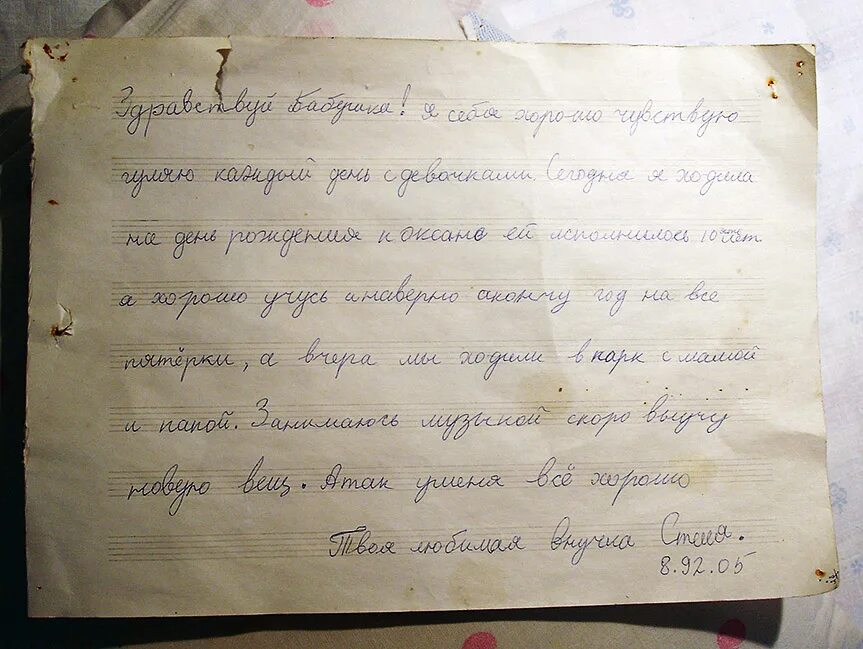 Здравствуй Бабушка! я себя хорошо чувствую
гуляю каждый день с девочками. Сегодня я ходила
на день рождения к оксане ей исполнилось 10 лет
я хорошо учусь и наверно окончу год на все
пятёрки, а вчера мы ходили в парк с мамой
и папой. Занимаюсь музыкой скоро выучу
новую вещ. А так уменя всё хорошо
Твоя любимая внучка
8.92.05